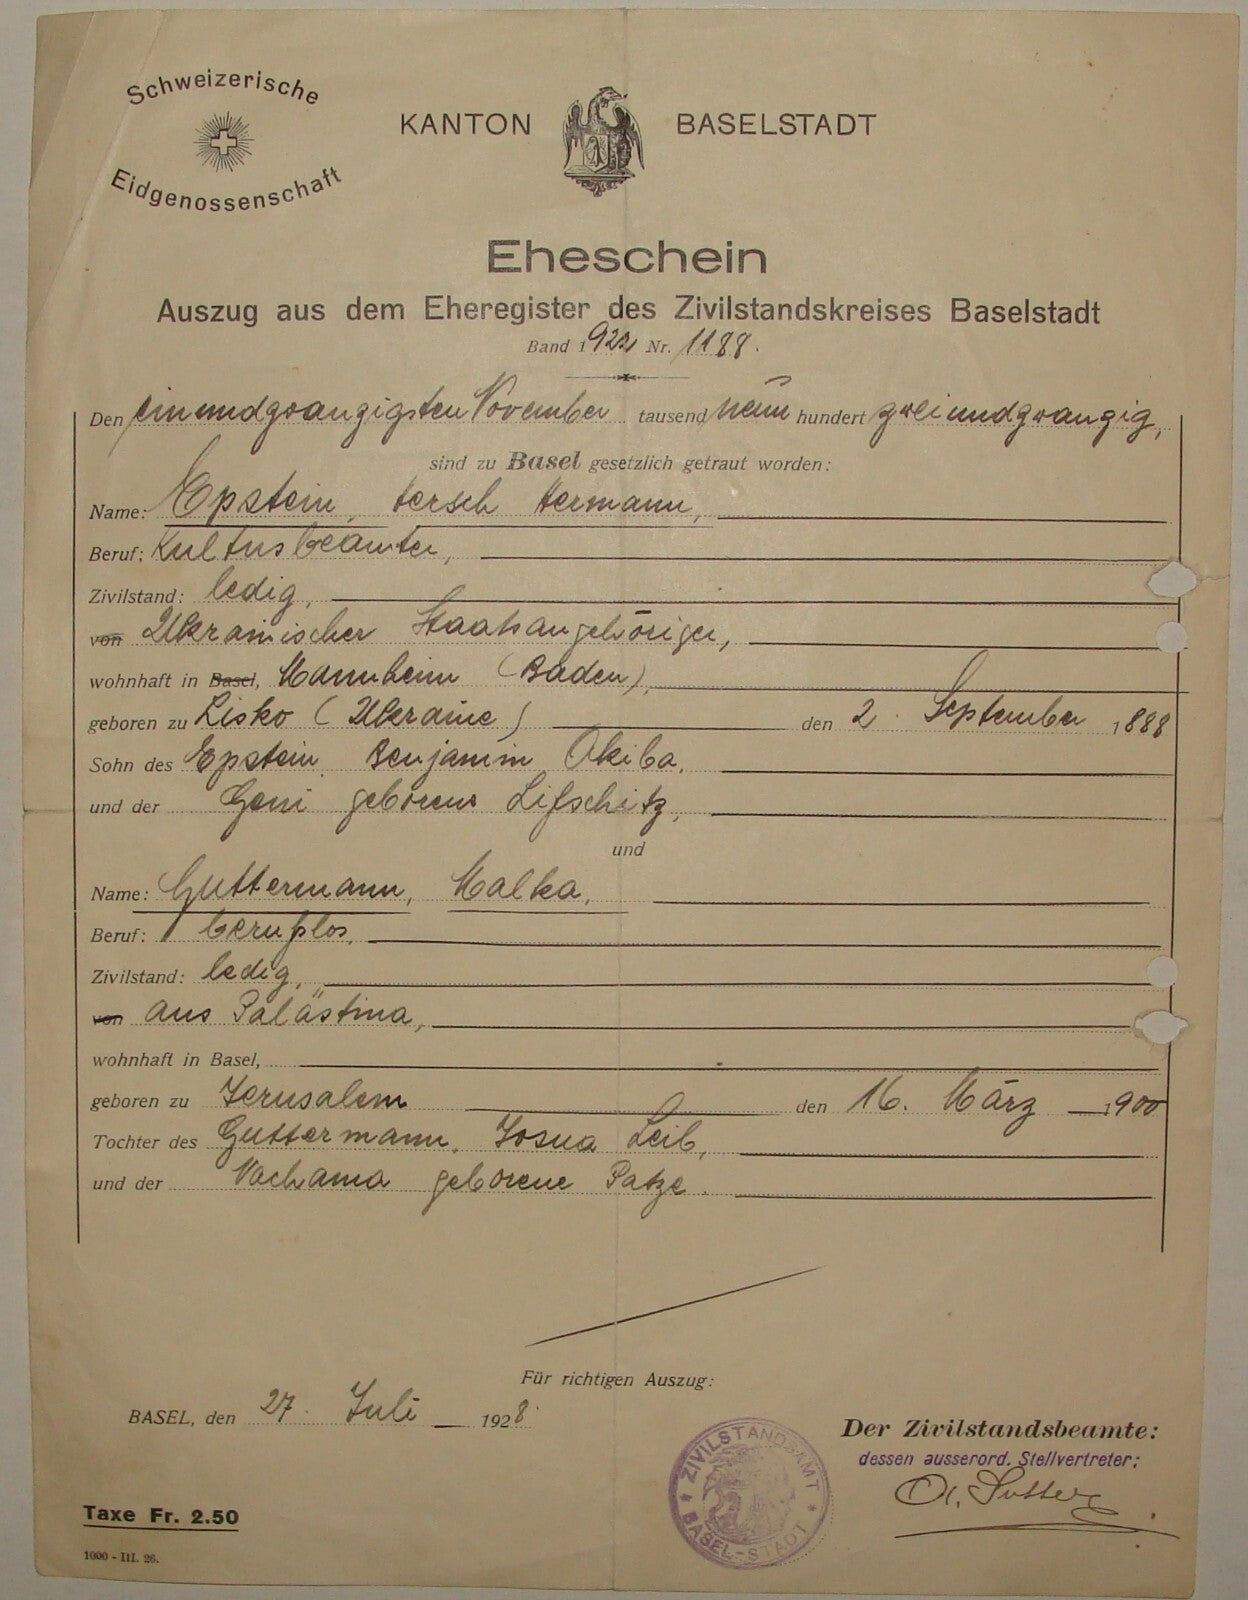 Schweizerische
Eidgenossenschaft
KANTON BASELSTADT
Eheschein
Auszug aus dem Eheregister des Zivilstandskreises Baselstadt
Band 1922 Nr. 1188.
Den einundzwanzigsten November tausend neun hundert zweiundzwanzig,
sind zu Basel gesetzlich getraut worden:
Name: Epstein, Hersch Hermann,
Beruf: Kultusbeamter,
Zivilstand: ledig,
von Ukrainischer Staatsangehöriger,
wohnhaft in Basel, Mannheim (Baden),
geboren zu Lisko (Ukraine) den 2. September 1888
Sohn des Epstein, Benjamin Akiba,
und der Geni geborene Lifschitz,
und
Name: Guttermann, Malka,
Beruf: berufslos,
Zivilstand: ledig,
von aus Palästina,
wohnhaft in Basel,
geboren zu Jerusalem den 16. März 1900
Tochter des Guttermann, Josua Leib,
und der Nachama geborene Patze.
Für richtigen Auszug:
BASEL, den 27. Juli 1928.
Der Zivilstandsbeamte:
dessen ausserord. Stellvertreter:
Sutter
ZIVILSTANDSAMT
BASEL-STADT
Taxe Fr. 2.50
1000 - III. 26.